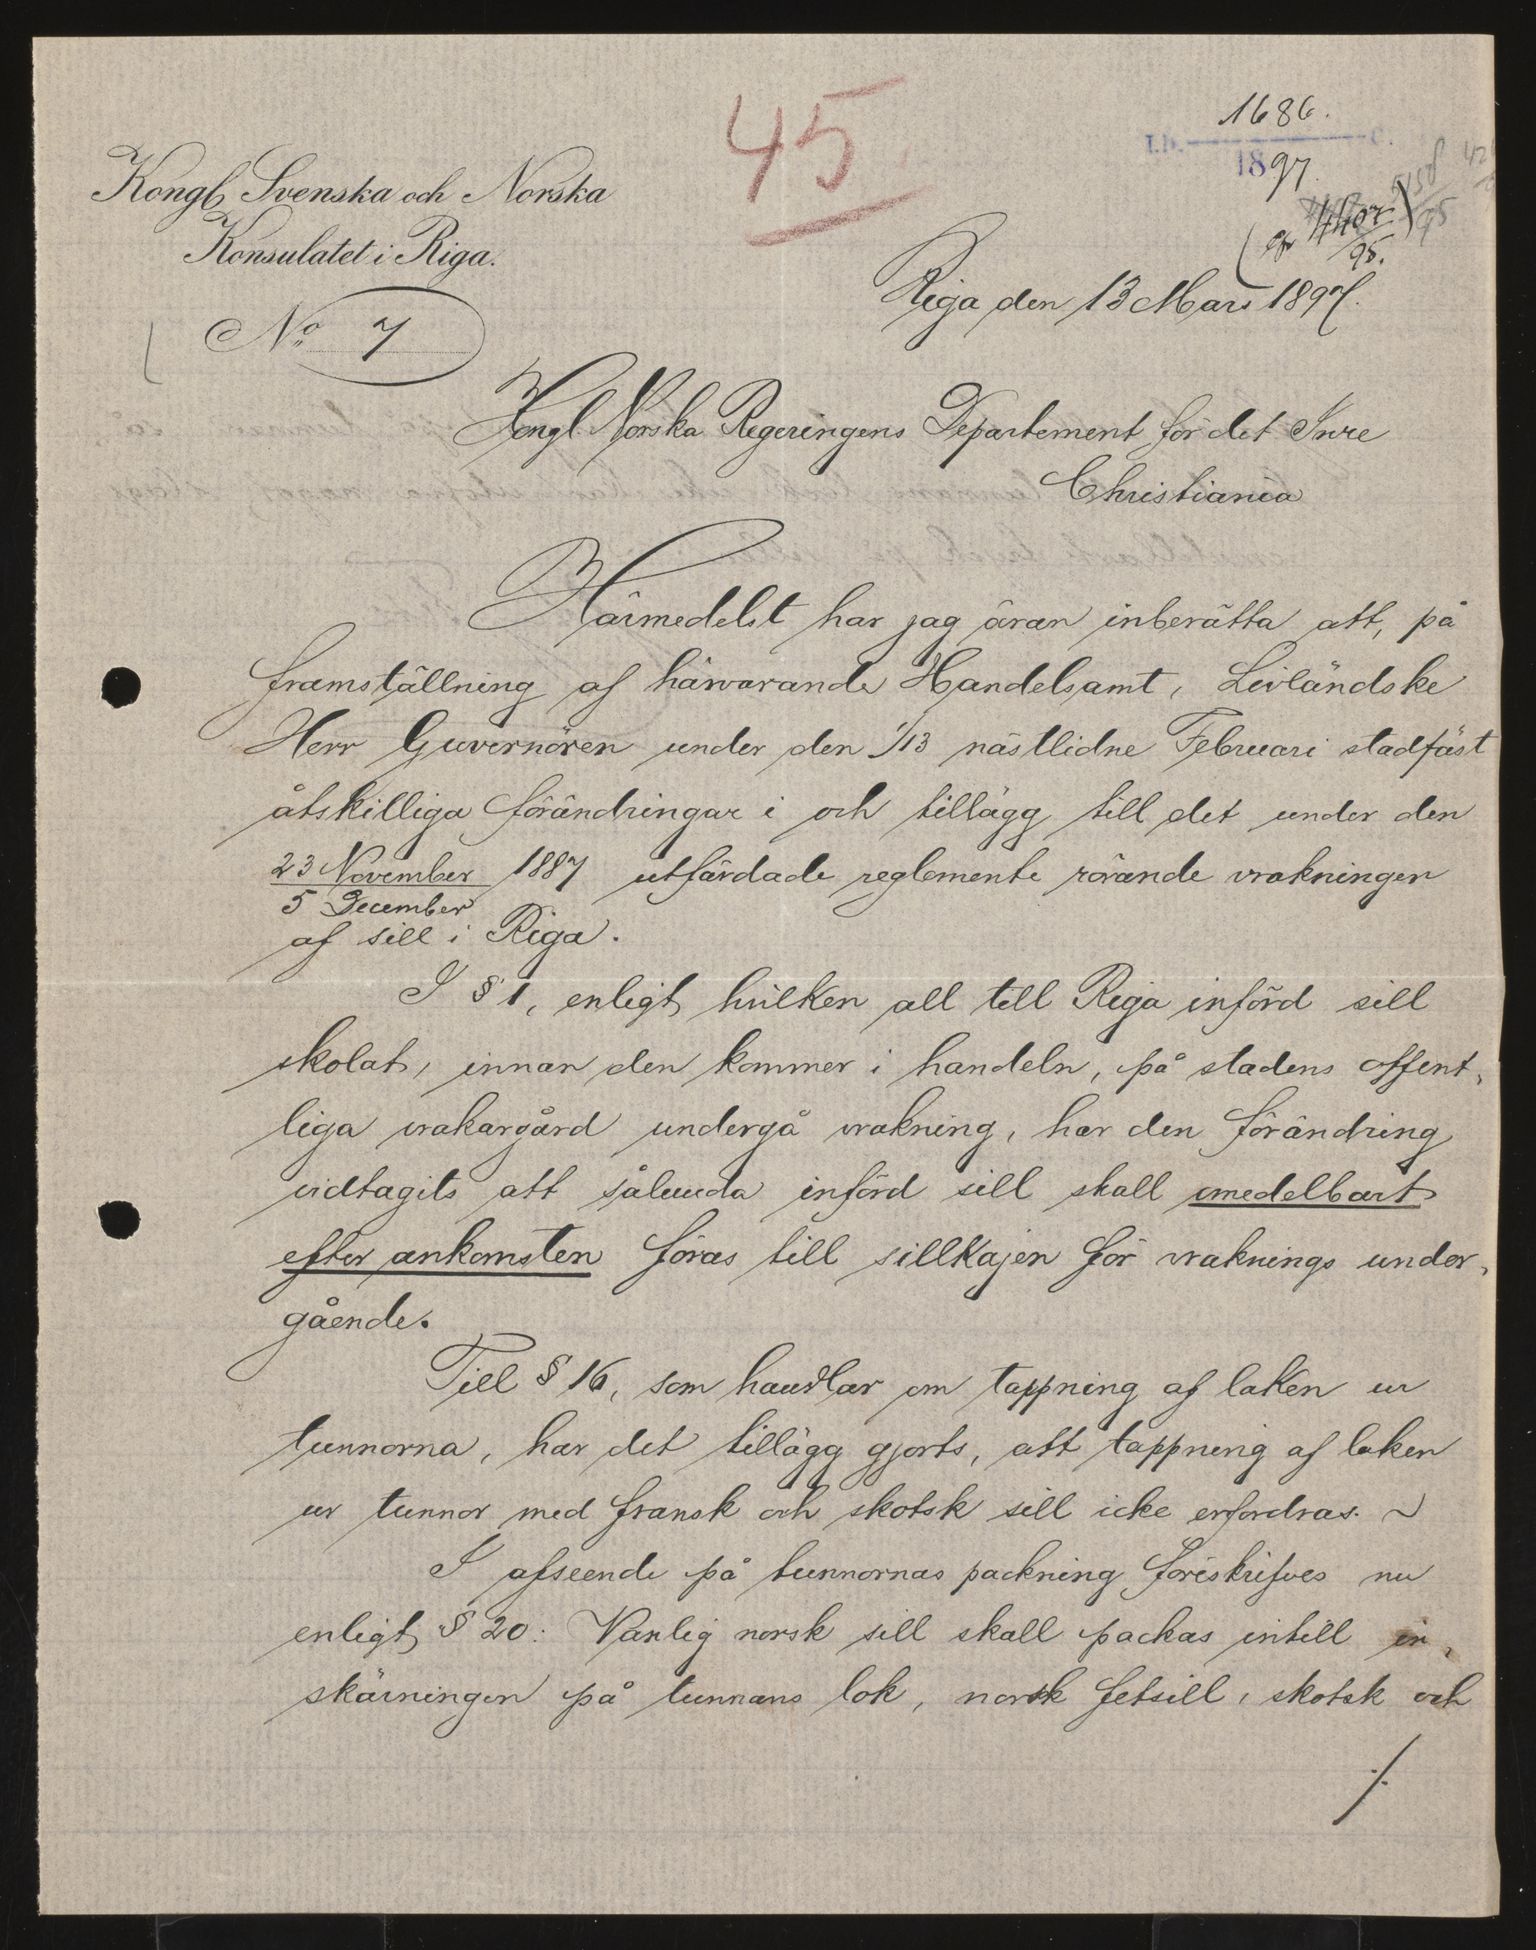 45
1686.
I.D. C.
1897.
Kongl. Svenska och Norska
Konsulatet i Riga.
No 7
Riga den 13 Mars 1897.
Kongl. Norska Regeringens Departement för det Inre
Christiania
Härmedelst har jag äran inberätta att, på
framställning af härvarande Handelsamt, Livländske
Herr Guvernören under den 1/13 nästlidne Februari stadfäst
åtskilliga förändringar i och tillägg till det under den
23 November / 5 December 1887 utfärdade reglemente rörande vrakningen
af sill i Riga.
I § 1, enligt hvilken all till Riga införd sill
skolat, innan den kommer i handeln, på stadens offent-
liga vrakargård undergå vrakning, har den förändring
vidtagits att sålunda införd sill skall omedelbart
efter ankomsten föras till sillkajen för vraknings under-
gående.
Till § 16, som handlar om tappning af laken ur
tunnorna, har det tillägg gjorts, att tappning af laken
ur tunnor med fransk och skotsk sill icke erfordras.
I afseende på tunnornas packning föreskrifves nu
enligt § 20: Vanlig norsk sill skall packas intill in-
skärningen på tunnans lok, norsk fetsill, skotsk och
./.